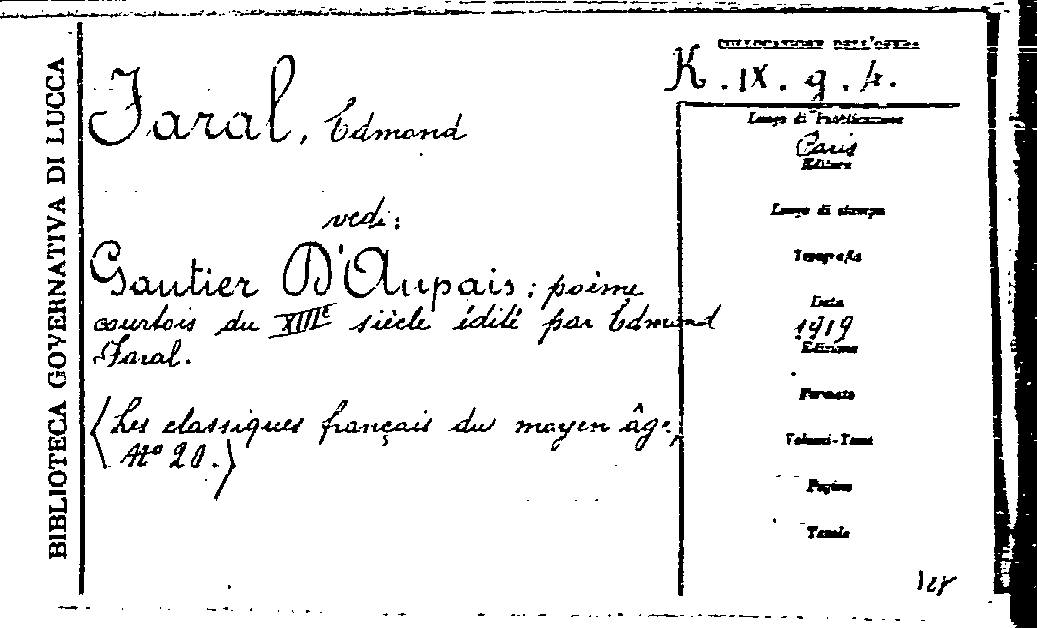 BIBLIOTECA GOVERNATIVA DI LUCCA
Faral, Edmond
vedi:
Gautier D'Aupais; poème
courtois du XIIIe siècle édité par Edmond
Faral.
(Les classiques français du moyen âge,
No 20.)
COLLOCAZIONE DELL'OPERA
K. IX. g. 4.
Luogo di Pubblicazione
Paris
Editore
Luogo di stampa
Tipografia
Data
1919
Edizione
Formato
Volumi-Tomi
Pagine
Tavole